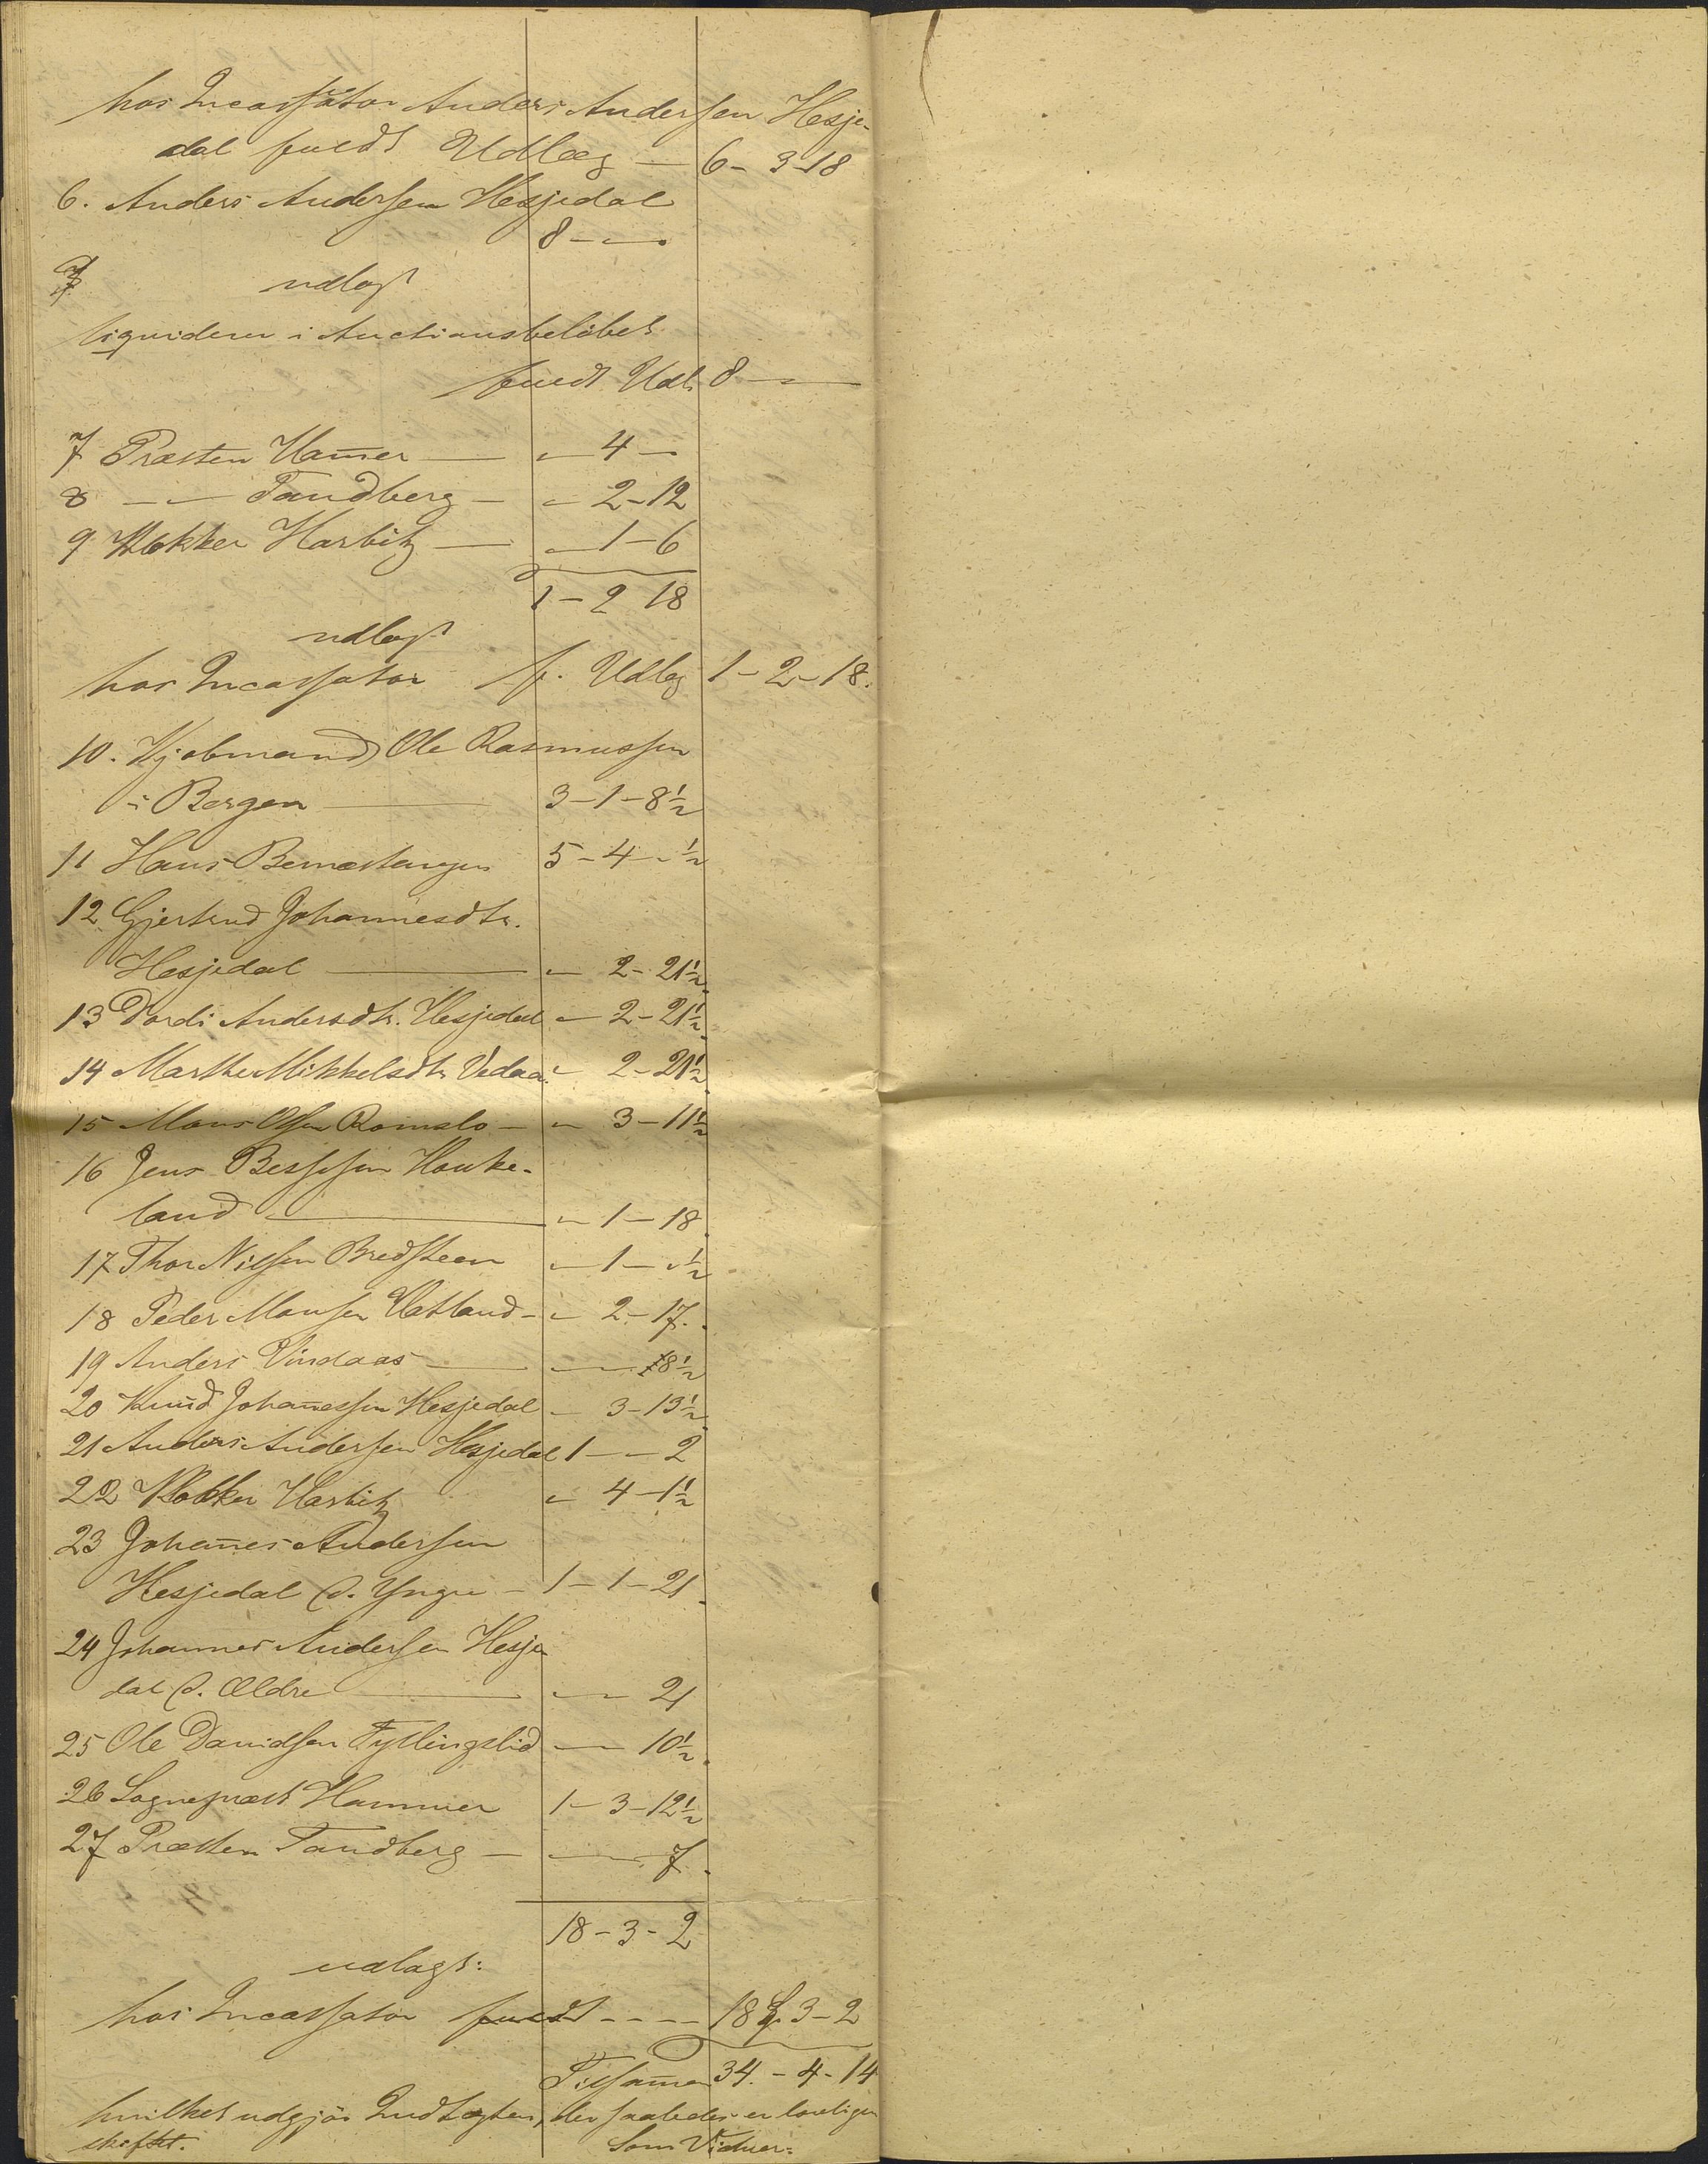 hos Incassator Anders Andersen Hesje-
dal fuldt Udlæg — 6 - 3-18
6. Anders Andersen Hesjedal
8 - — .
udlagt
liquiderer i Auctionsbeløbet
fuldt Udl. 8 — —
7 Præsten Ham̄er — " 4 —
8 — " — Tandberg — " 2-12
9 Klokker Harbitz — " 1-6
1 - 2 18
udlagt
hos Incassator f. Udlæg 1 - 2 - 18.
10. Kjøbmand Ole Rasmussen
i Bergen — 3 - 1 - 8½
11 Hans Bernæstangen 5 - 4 - " ½
12 Gjertrud Johannesdtr.
Hesjedal — " 2 - 21½
13 Dordi Andersdtr. Hesjedal " 2 - 21½
14 Marthe Mikkelsdtr Vedaa " 2 - 21½
15 Mons Olsen Romslo — " 3 - 11½
16 Jens Bessesen Houke-
land — " 1 - 18
17 Thor Nilsen Bredsteen " 1 - " ½
18 Peder Monsen Vatland - " 2 - 17.
19 Anders Vindaas — " — 18½
20 Knud Johan̄essen Hesjedal " 3 - 13½
21 Anders Andersen Hesjedal 1 — - 2
22 Klokker Harbitz " 4 - 1½
23 Johan̄es Andersen
Hesjedal d. Yngre - 1 - 1 - 21
24 Johannes Andersen Hesje
dal d. Ældre — " — 21
25 Ole Davidsen Tyllingslid " — 10½
26 Sognepræst Hammer 1 - 3 - 12½
27 Præsten Tandberg — " — 7.
18 - 3 - 2
udlagt:
hos Incassator fuldt - - - - 18 3 - 2
Tilsam̄en 34. - 4 - 14
hvilket udgjør Indtægten, der saaledes er lovligen
skiftet. Som Vidner: